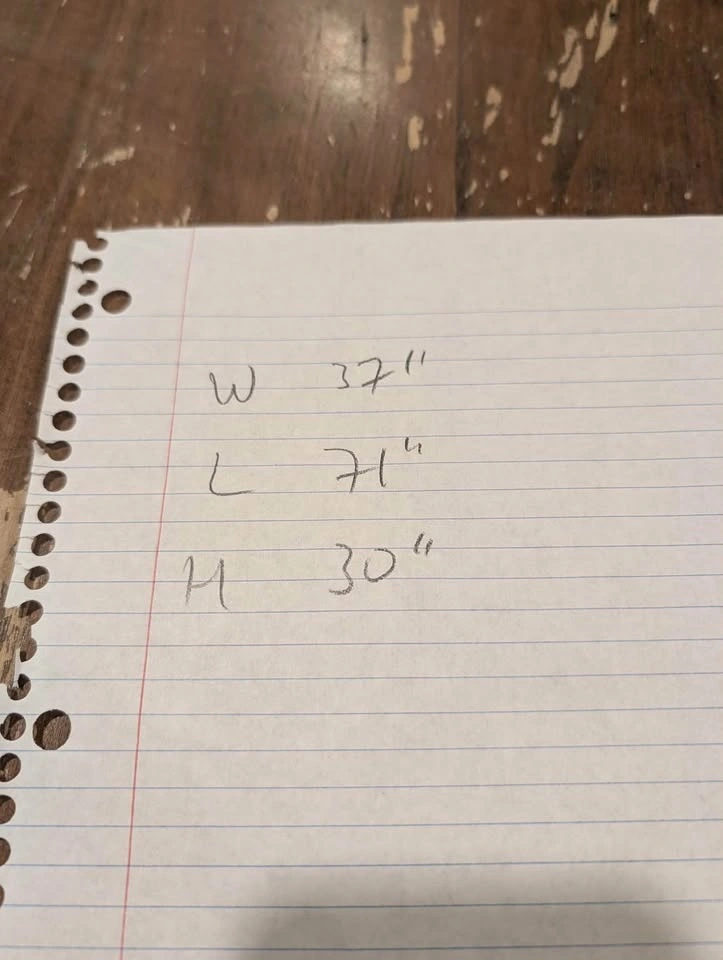 W 37"
L 71"
H 30"